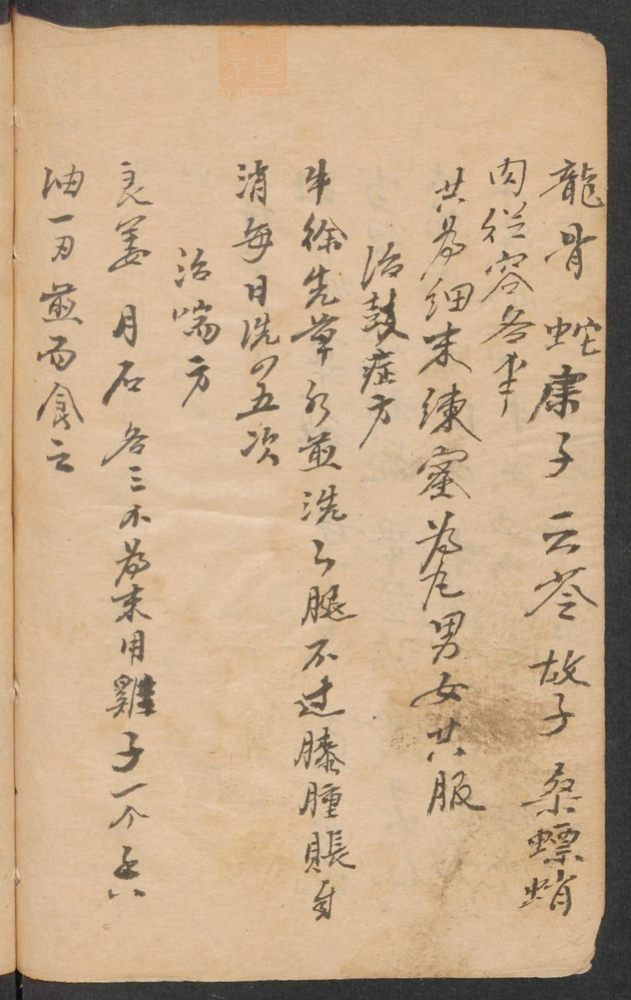 龍骨 蛇床子 云苓 故子 桑螵蛸
肉從容各半
共為細末練蜜為丸男女共服
治鼓症方
牛徐先草水煎洗之腿不过膝腫賬自
消每日洗四五次
治喘方
良姜 月石 各三 為末用雞子一个香
油一刃煎而食之